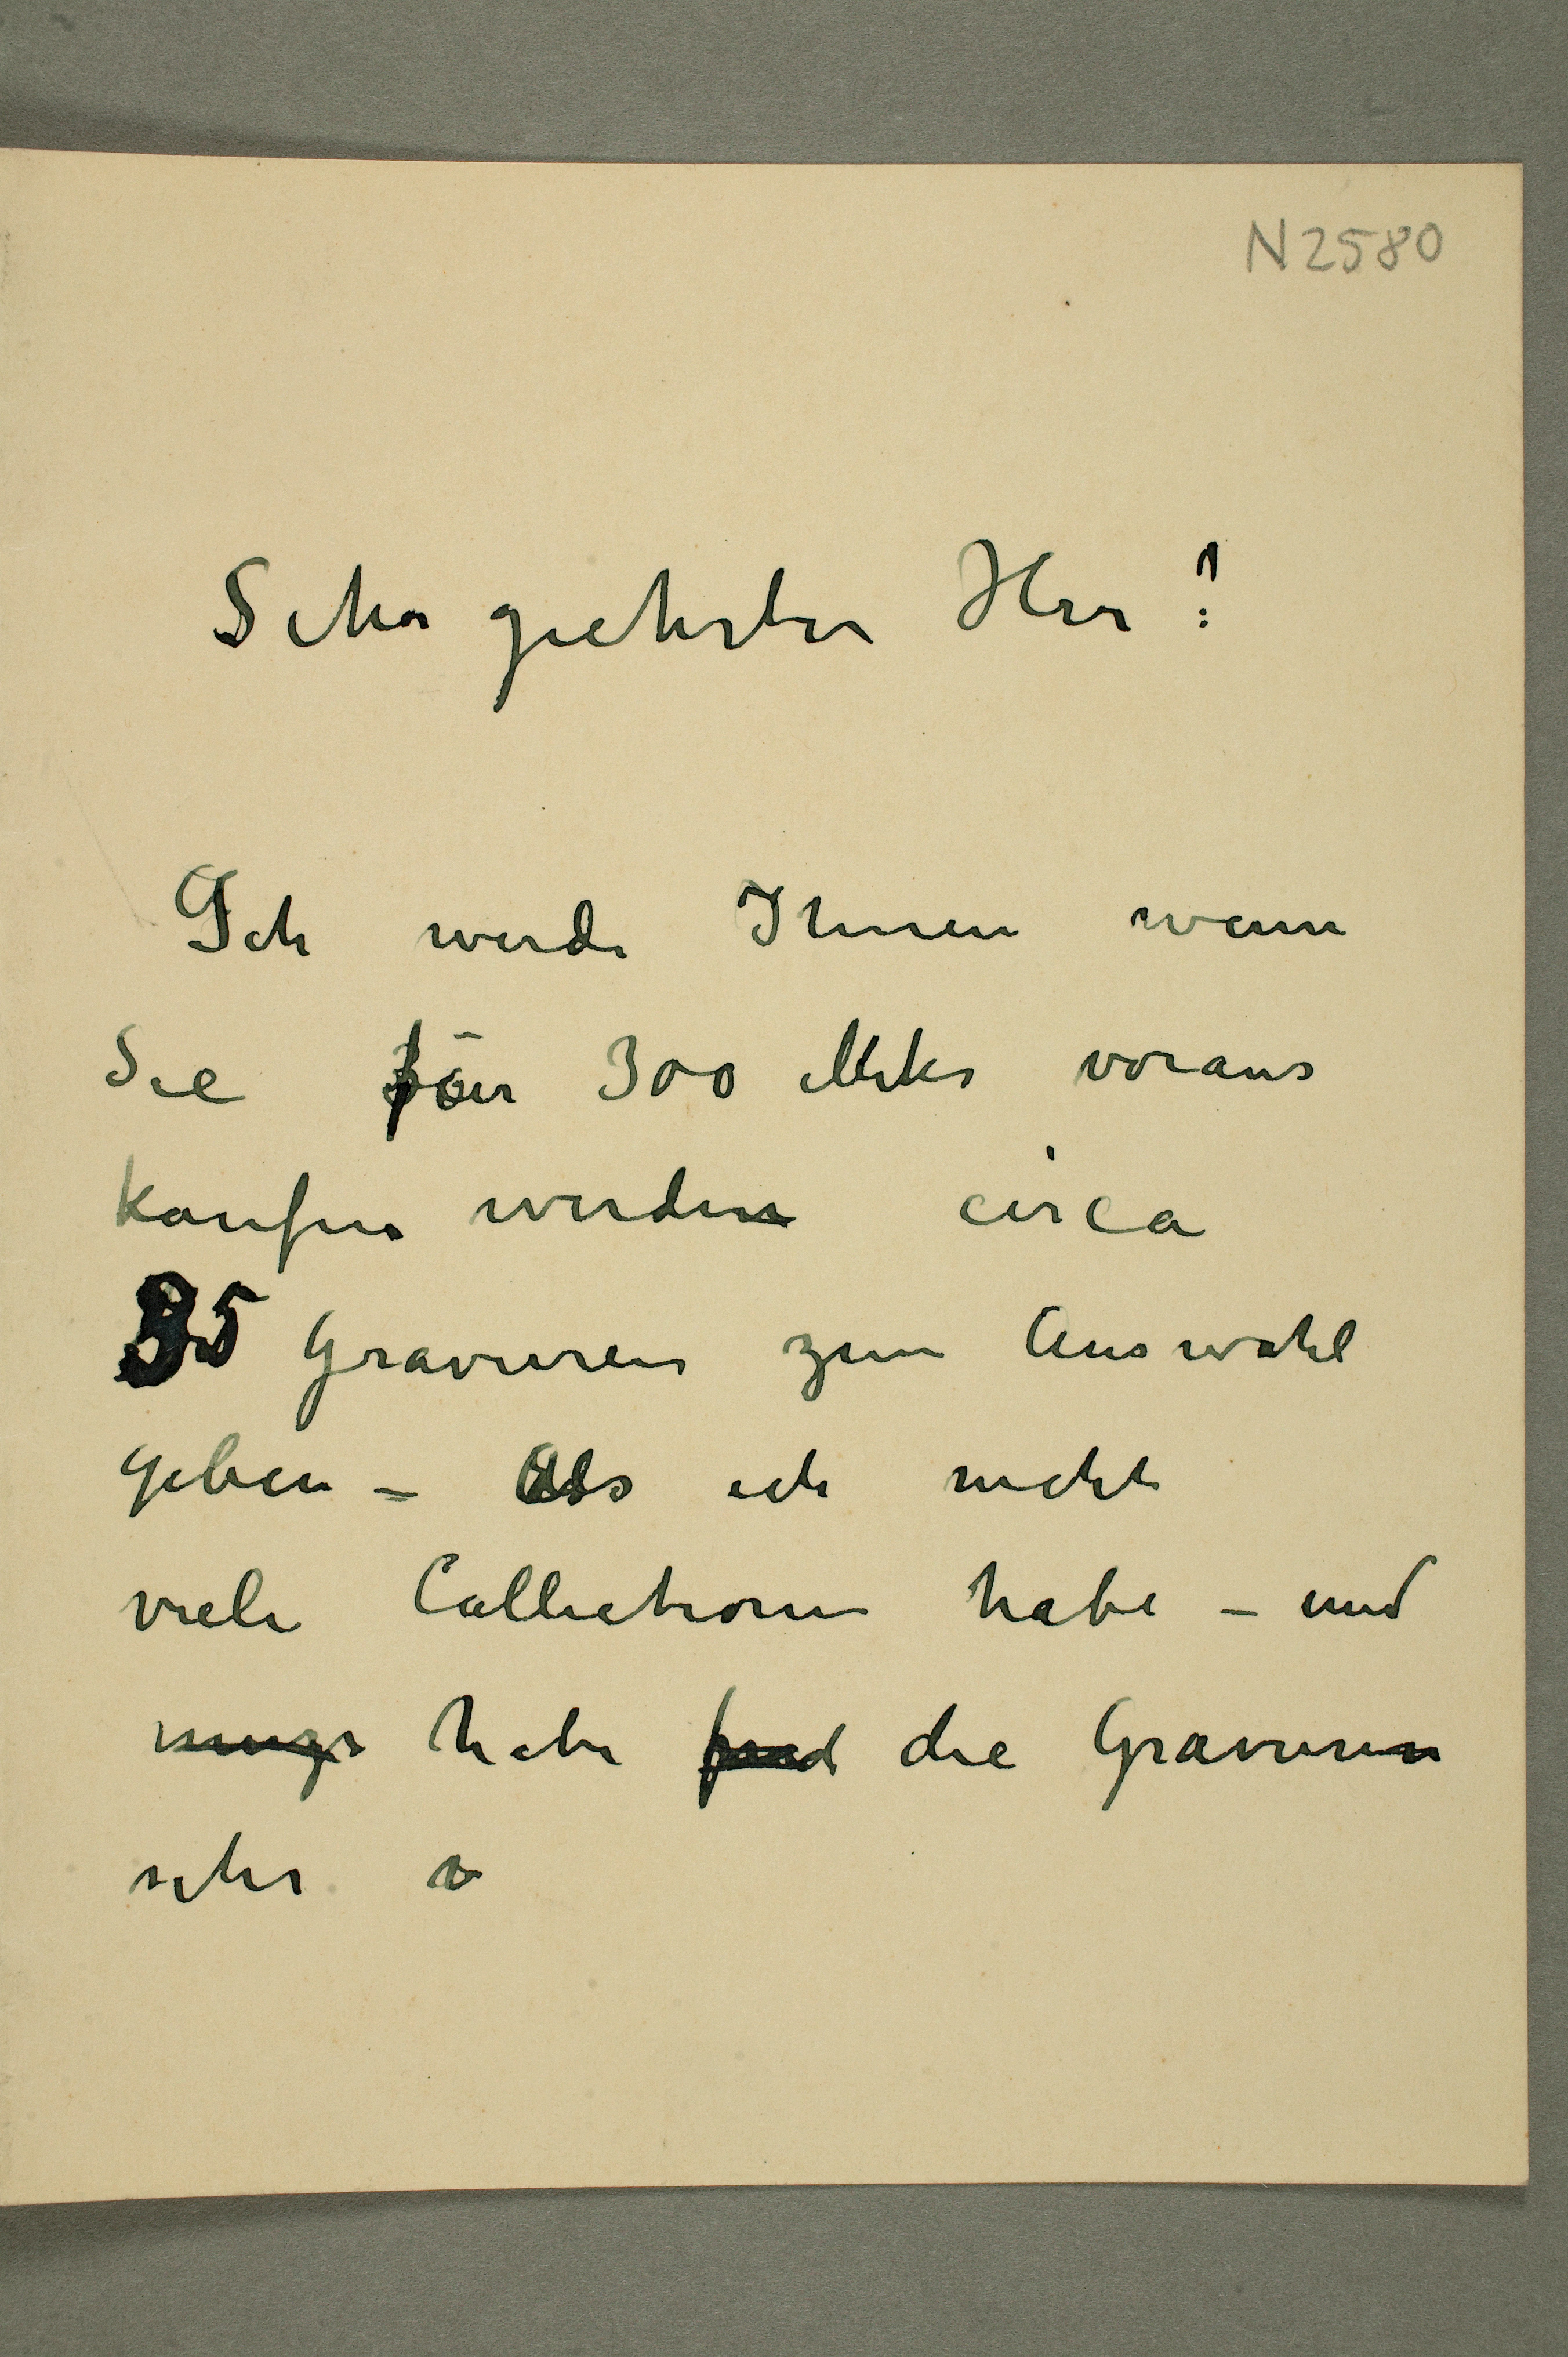 N 2580
Sehr geehrter Herr!
Ich werde Ihnen wenn
Sie für 300 Mks voraus
kaufen werden circa
35 Gravuren zum Auswahl
geben – Als ich nicht
viele Collectionen habe – und
habe die Gravuren
sehr